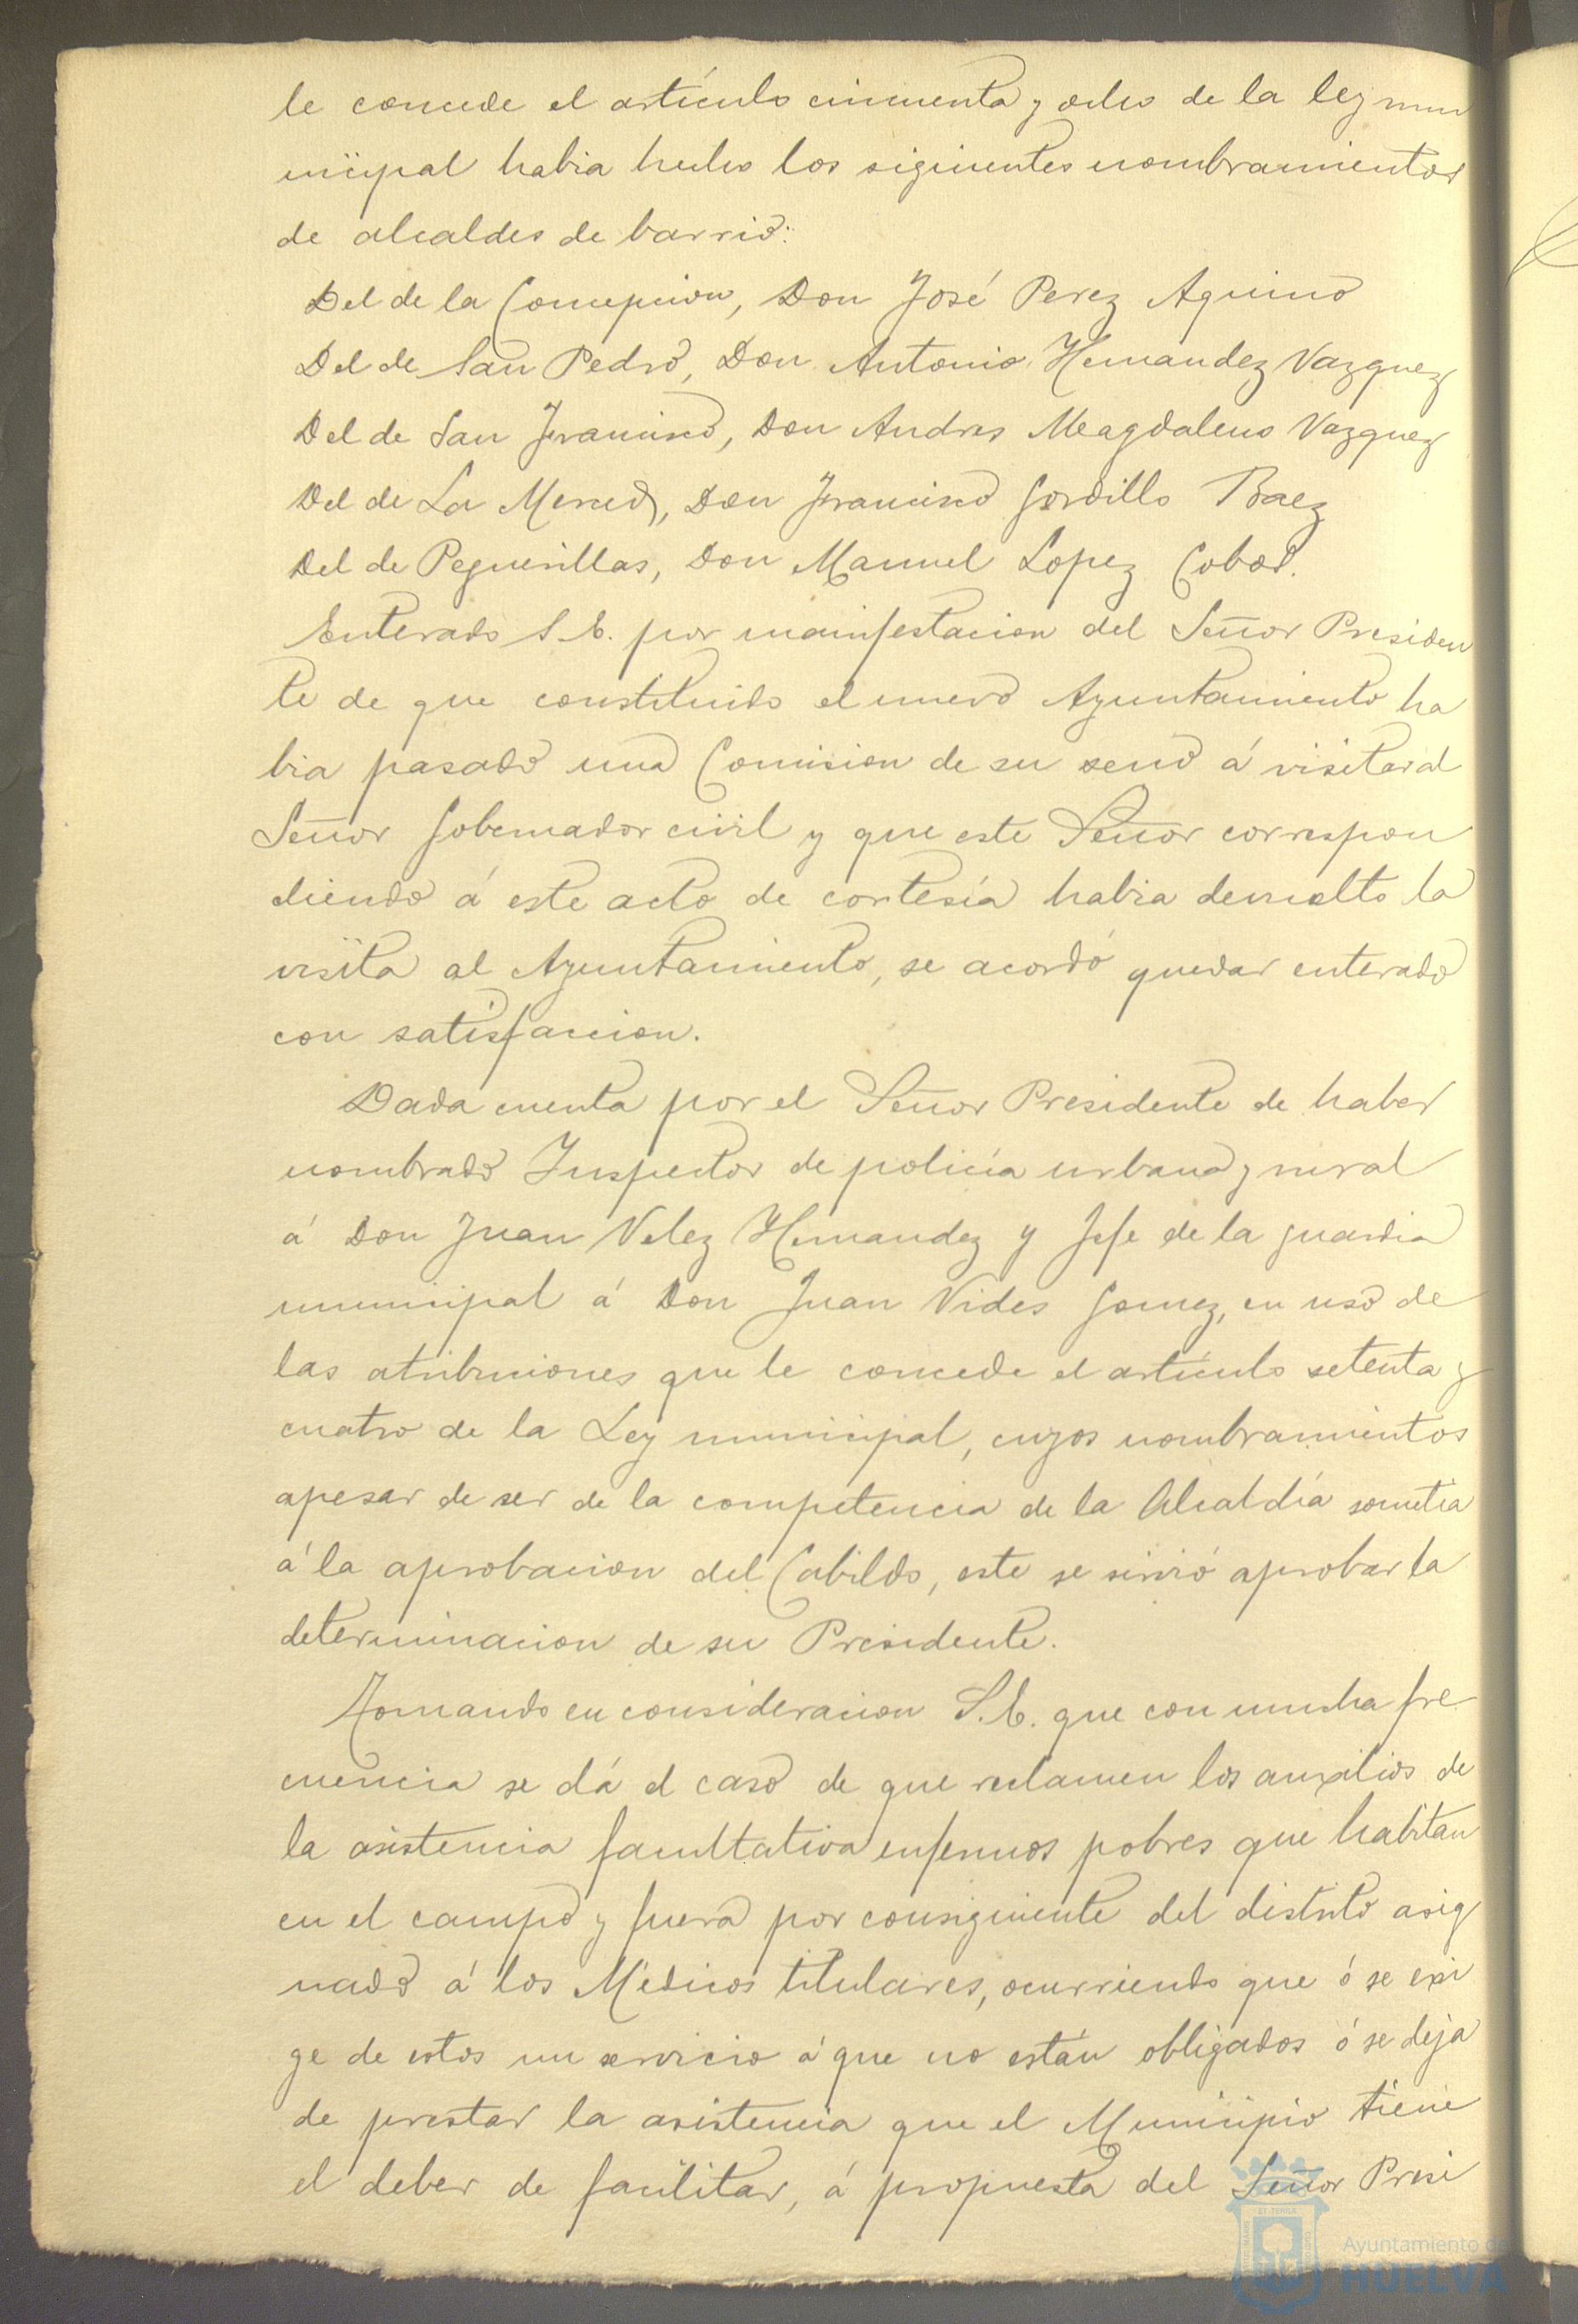 le concede el artículo cincuenta y ocho de la ley mu
nicipal habia hecho los siguientes nombramientos
de alcaldes de barrio:
Del de la Concepcion, Don José Perez Aquino
Del de San Pedro, Don Antonio Hernandez Vazquez
Del de San Francisco, Don Andres Magdaleno Vazquez
Del de La Merced, Don Francisco Gordillo Baez
Del de Peguerillas, Don Manuel Lopez Cobos.
Enterado S. E. por manifestacion del Señor Presiden
te de que constituido el nuevo Ayuntamiento ha
bia pasado una Comision de su seno á visitar al
Señor Gobernador civil y que este Señor correspon
diendo á este acto de cortesía habia devuelto la
visita al Ayuntamiento, se acordó quedar enterado
con satisfaccion.
Dada cuenta por el Señor Presidente de haber
nombrado Inspector de policía urbana y rural
á Don Juan Velez Hernandez y Jefe de la guardia
municipal á Don Juan Vides Gomez, en uso de
las atribuciones que le concede el artículo setenta y
cuatro de la Ley municipal, cuyos nombramientos
apesar de ser de la competencia de la Alcaldía sometia
á la aprobacion del Cabildo, este se sirvió aprobar la
determinacion de su Presidente.
Tomando en consideracion S. E. que con mucha fre
cuencia se dá el caso de que reclamen los auxilios de
la asistencia facultativa enfermos pobres que habitan
en el campo y fuera por consiguiente del distrito asig
nado á los Médicos titulares, ocurriendo que ó se exi
ge de estos un servicio á que no están obligados ó se deja
de prestar la asistencia que el Municipio tiene
el deber de facilitar, á propuesta del Señor Presi
Ayuntamiento de
HUELVA